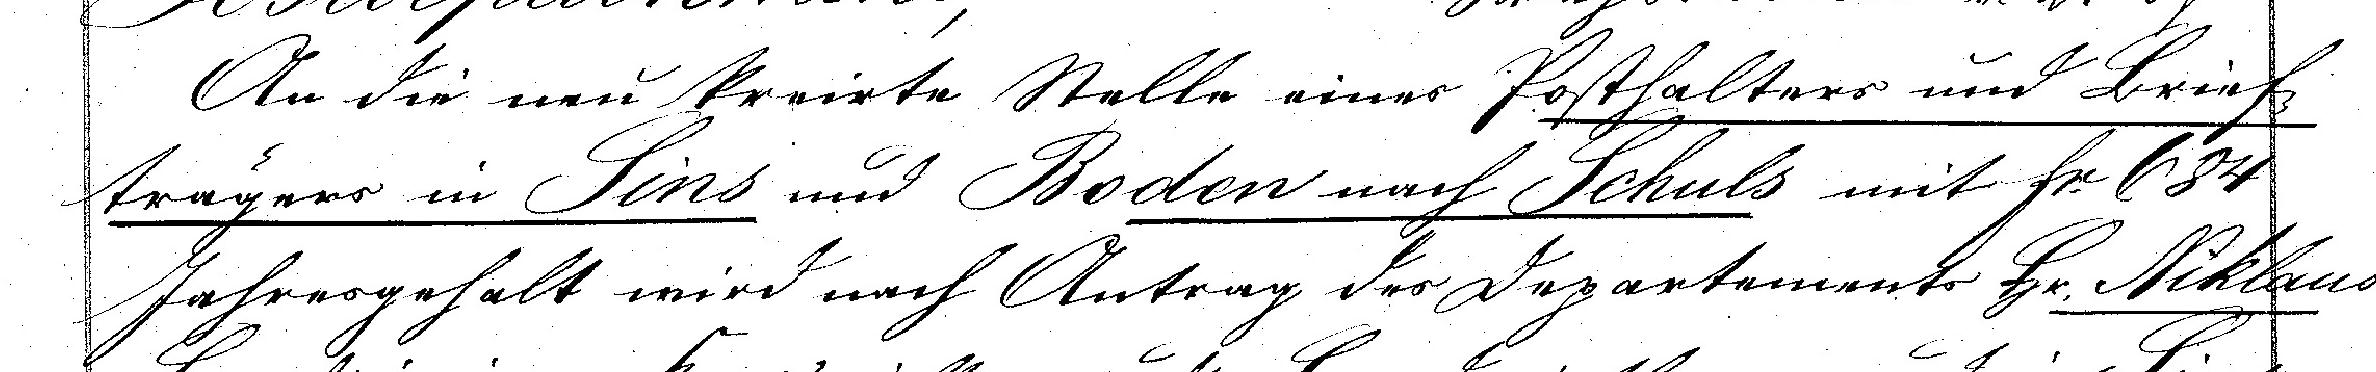 An die neu kreirte Stelle eines Posthalters und Brief-
trägers in Sins und Boden nach Schuls mit fr 684
Jahresgehalt wird nach Antrag des Departements Hr. Niklaus